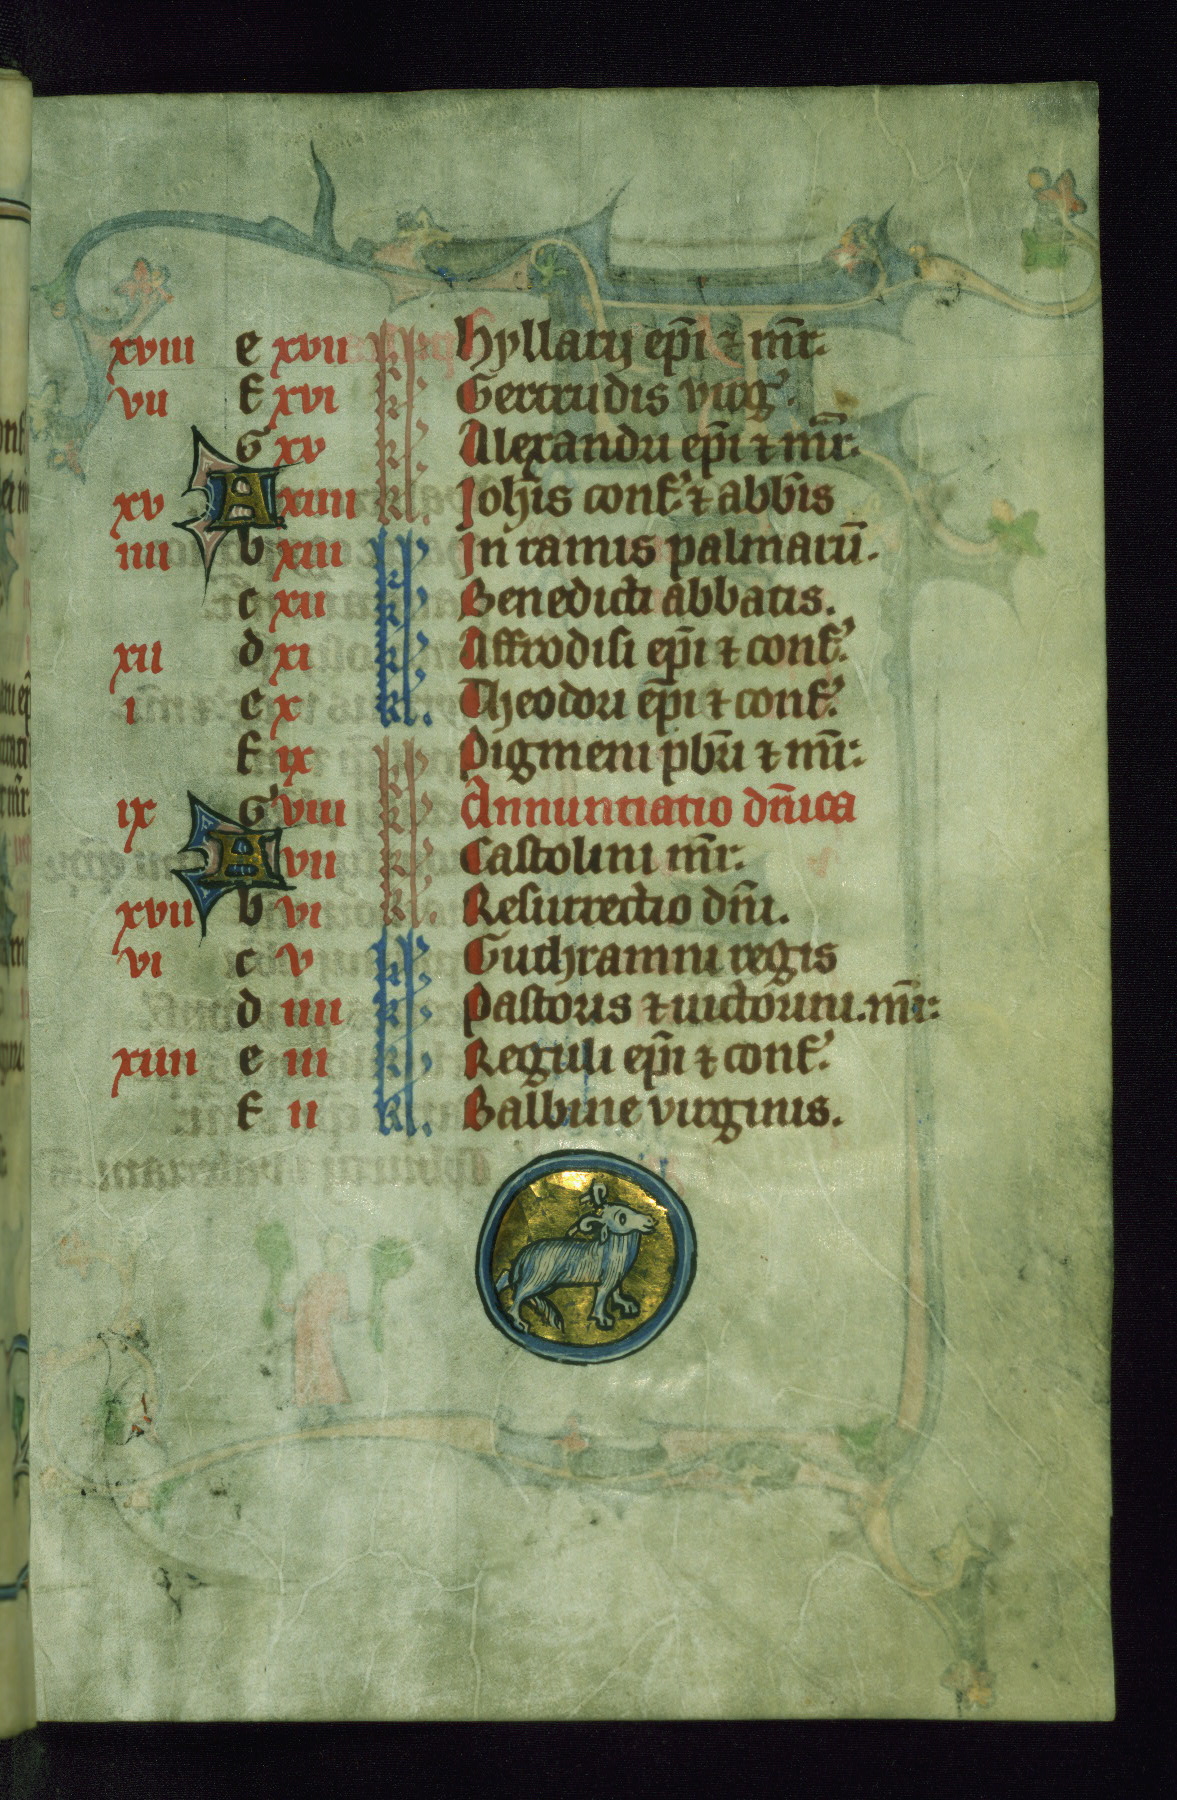 xviii e xvii kl hyllarij ep̄i ⁊ m̄r.
vii f xvi kl Gertrudis virg̾.
G xv kl Alexandri ep̄i ⁊ mr̄.
xv A xiiii kl. Joh̄is conf̾ ⁊ abb̄is
iiii b xiii kl In ramis palmarū.
c xii kl Benedicti abbatis.
xii d xi kl Affrodisi ep̄i ⁊ conf̾.
i e x kl. Theodori ep̄i ⁊ conf̾.
f ix kl Pigmeni pb̄ri ⁊ mr̄.
ix G viii kl Annuntiatio dn̄ica
A vii kl Castolini mr̄.
xvii b vi kl. Resurrectio dn̄i.
vi c v kl Guthramni regis
d iiii kl Pastoris ⁊ uictorini. mr̄.
xiiii e iii kl Reguli ep̄i ⁊ conf̾.
f ii kl. Balbine virginis.